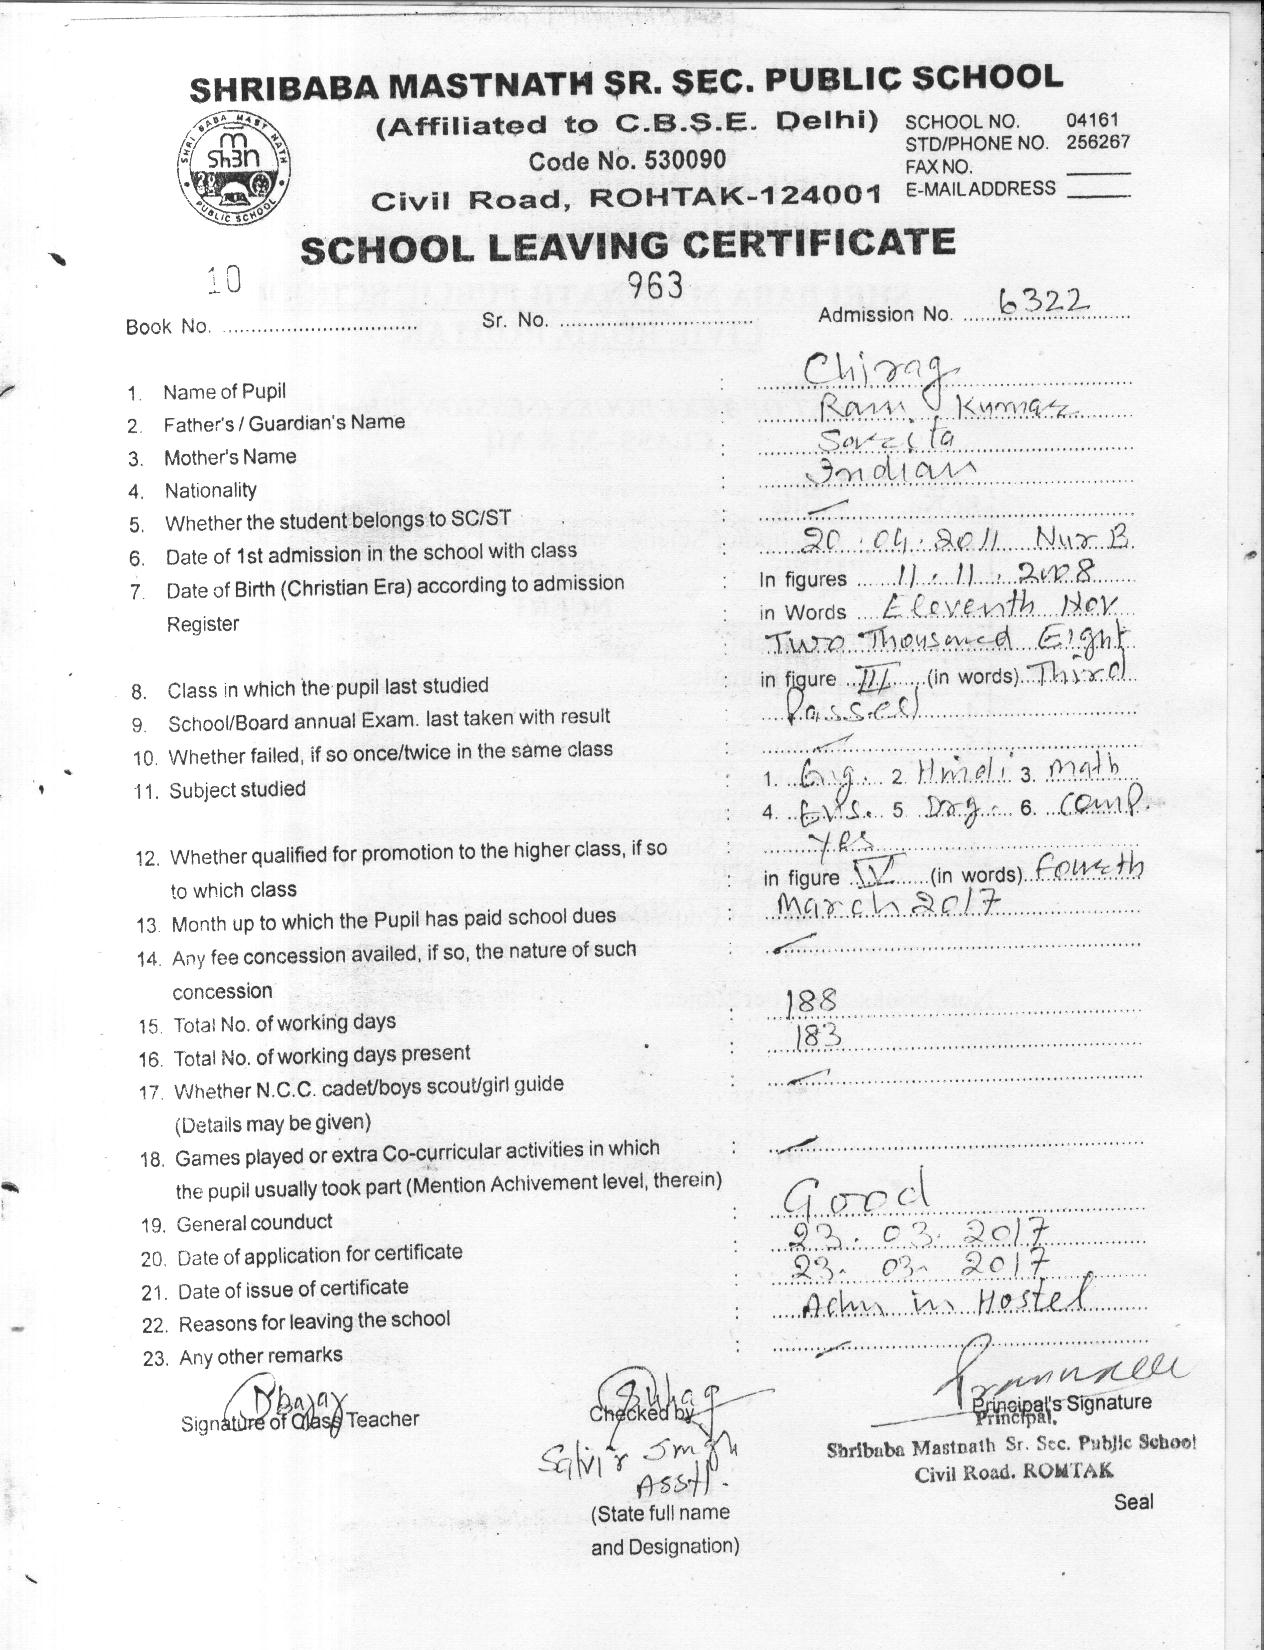 SHRIBABA MASTNATH SR. SEC. PUBLIC SCHOOL
(Affiliated to C.B.S.E. Delhi)
SCHOOL NO. 04161
STD/PHONE NO. 256267
Code No. 530090
FAX NO.
Civil Road, ROHTAK-124001
E-MAIL ADDRESS
SHRI BABA MAST NATH
PUBLIC SCHOOL
SCHOOL LEAVING CERTIFICATE
Book No. 10 Sr. No. 963 Admission No. 6322
1. Name of Pupil : Chirag
2. Father's / Guardian's Name : Ram Kumar
3. Mother's Name : Savita
4. Nationality : Indian
5. Whether the student belongs to SC/ST :
6. Date of 1st admission in the school with class : 20.04.2011 Nur B
7. Date of Birth (Christian Era) according to admission : In figures 11.11.2008
Register : in Words Eleventh Nov
Two Thousand Eight
8. Class in which the pupil last studied : in figure III (in words) Third
9. School/Board annual Exam. last taken with result : Passed
10. Whether failed, if so once/twice in the same class :
11. Subject studied : 1. Eng. 2. Hindi 3. Math
: 4. EVS. 5. Drg. 6. Comp.
12. Whether qualified for promotion to the higher class, if so : yes
to which class : in figure IV (in words) Fourth
13. Month up to which the Pupil has paid school dues : March 2017
14. Any fee concession availed, if so, the nature of such :
concession
15. Total No. of working days : 188
16. Total No. of working days present : 183
17. Whether N.C.C. cadet/boys scout/girl guide :
(Details may be given)
18. Games played or extra Co-curricular activities in which :
the pupil usually took part (Mention Achivement level, therein)
19. General counduct : Good
20. Date of application for certificate : 23.03.2017
21. Date of issue of certificate : 23.03.2017
22. Reasons for leaving the school : Adm in Hostel
23. Any other remarks :
Signature of Class Teacher
Checked by
Principal's Signature
Principal,
Shribaba Mastnath Sr. Sec. Public School
Civil Road. ROMTAK
Asstt.
(State full name
and Designation)
Seal